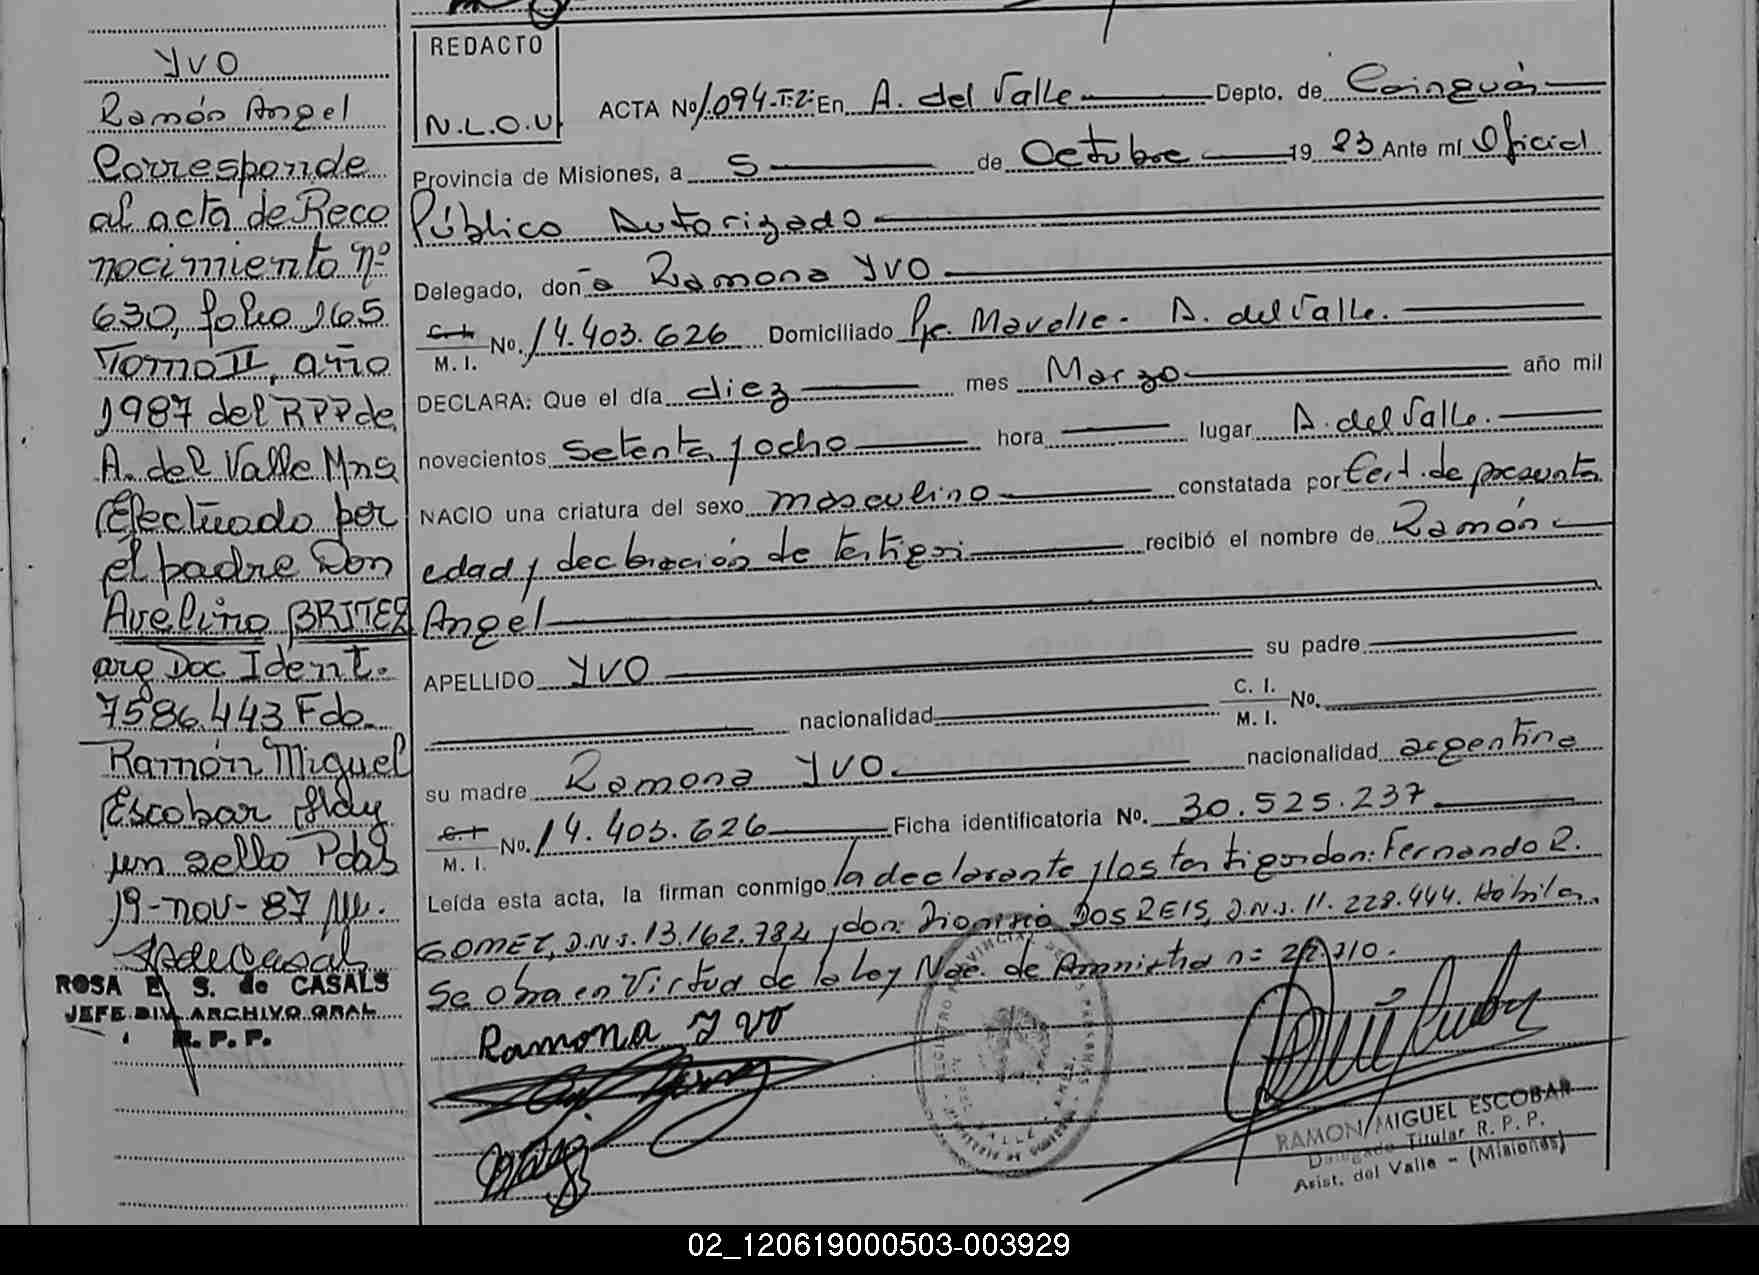 YVO
Ramón Angel
Corresponde
al acta de Reco
nocimiento nº
630, folio 165
Tomo II, año
1987 del RPP de
A. del Valle Mns
Efectuado por
el padre Don
Avelino BRITEZ
arg Doc Ident.
7586.443 Fdo.
Ramón Miguel
Escobar Hay
un sello Pdas
19-nov-87
ROSA E. S. de CASALS
JEFE DIV. ARCHIVO GRAL
R. P. P.
REDACTO
N.L.O.U.
ACTA Nº 1.094-T:2: En A. del Valle Depto. de Cainguás
Provincia de Misiones, a 5 de Octubre 19 83 Ante mí Oficial
Público Autorizado
Delegado, doña Ramona YVO
C. I.
M. I. No. 14.403.626 Domiciliado Pje. Mavalle. A. del Valle.
DECLARA: Que el día diez mes Marzo año mil
novecientos setenta y ocho hora lugar A. del Valle.
NACIO una criatura del sexo masculino constatada por Cert. de presunta
edad y declaración de testigos recibió el nombre de Ramón
Angel
APELLIDO YVO su padre
nacionalidad C. I.
M. I. No.
su madre Ramona YVO. nacionalidad argentina
C. I.
M. I. No. 14.403.626 Ficha identificatoria No. 30.525.237
Leída esta acta, la firman conmigo la declarante y los testigos don: Fernando R.
GOMEZ, D.N.I. 13.162.784 y don: Dionisio DOS REIS, D.N.I. 11.228.444. Habiles.
Se obra en Virtud de la Ley Nac. de Amnistía n= 22.710.
Ramona Yvo
RAMON MIGUEL ESCOBAR
Delegado Titular R. P. P.
Arist. del Valle - (Misiones)
02_120619000503-003929